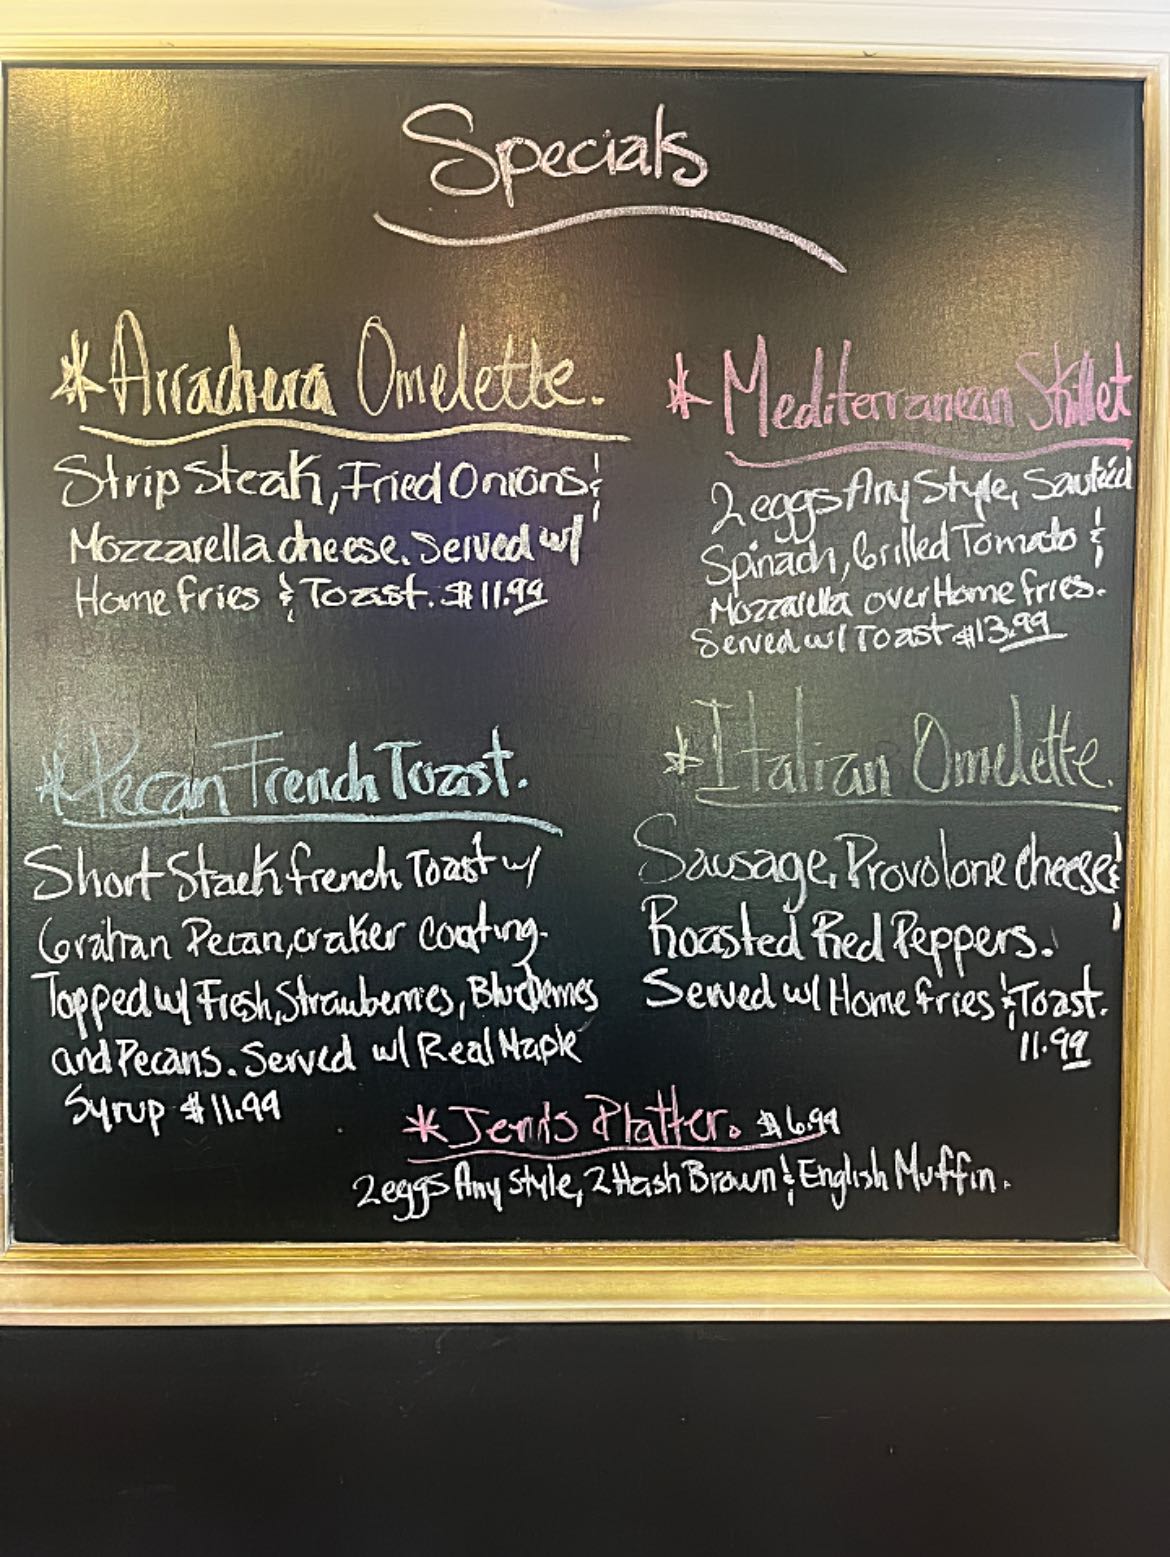 Specials
*Arrachera Omelette.
Strip Steak, Fried Onions &
Mozzarella cheese. Served w/
Home fries & Toast. $11.99
*Mediterranean Skillet
2 eggs Any Style, Sautéed
Spinach, Grilled Tomato &
Mozzarella over Home fries.
Served w/ Toast $13.99
*Pecan French Toast.
Short Stack french Toast w/
Grahan Pecan, craker coating.
Topped w/ Fresh, Strawberries, Blueberries
and Pecans. Served w/ Real Maple
Syrup $11.99
*Italian Omelette.
Sausage, Provolone cheese &
Roasted Red Peppers.
Served w/ Home fries & Toast.
11.99
*Jenn's Platter. $6.99
2 eggs Any style, 2 Hash Brown & English Muffin.